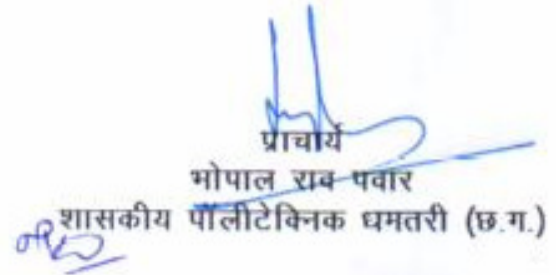 प्राचार्य
भोपाल राव पवार
शासकीय पॉलीटेक्निक धमतरी (छ.ग.)